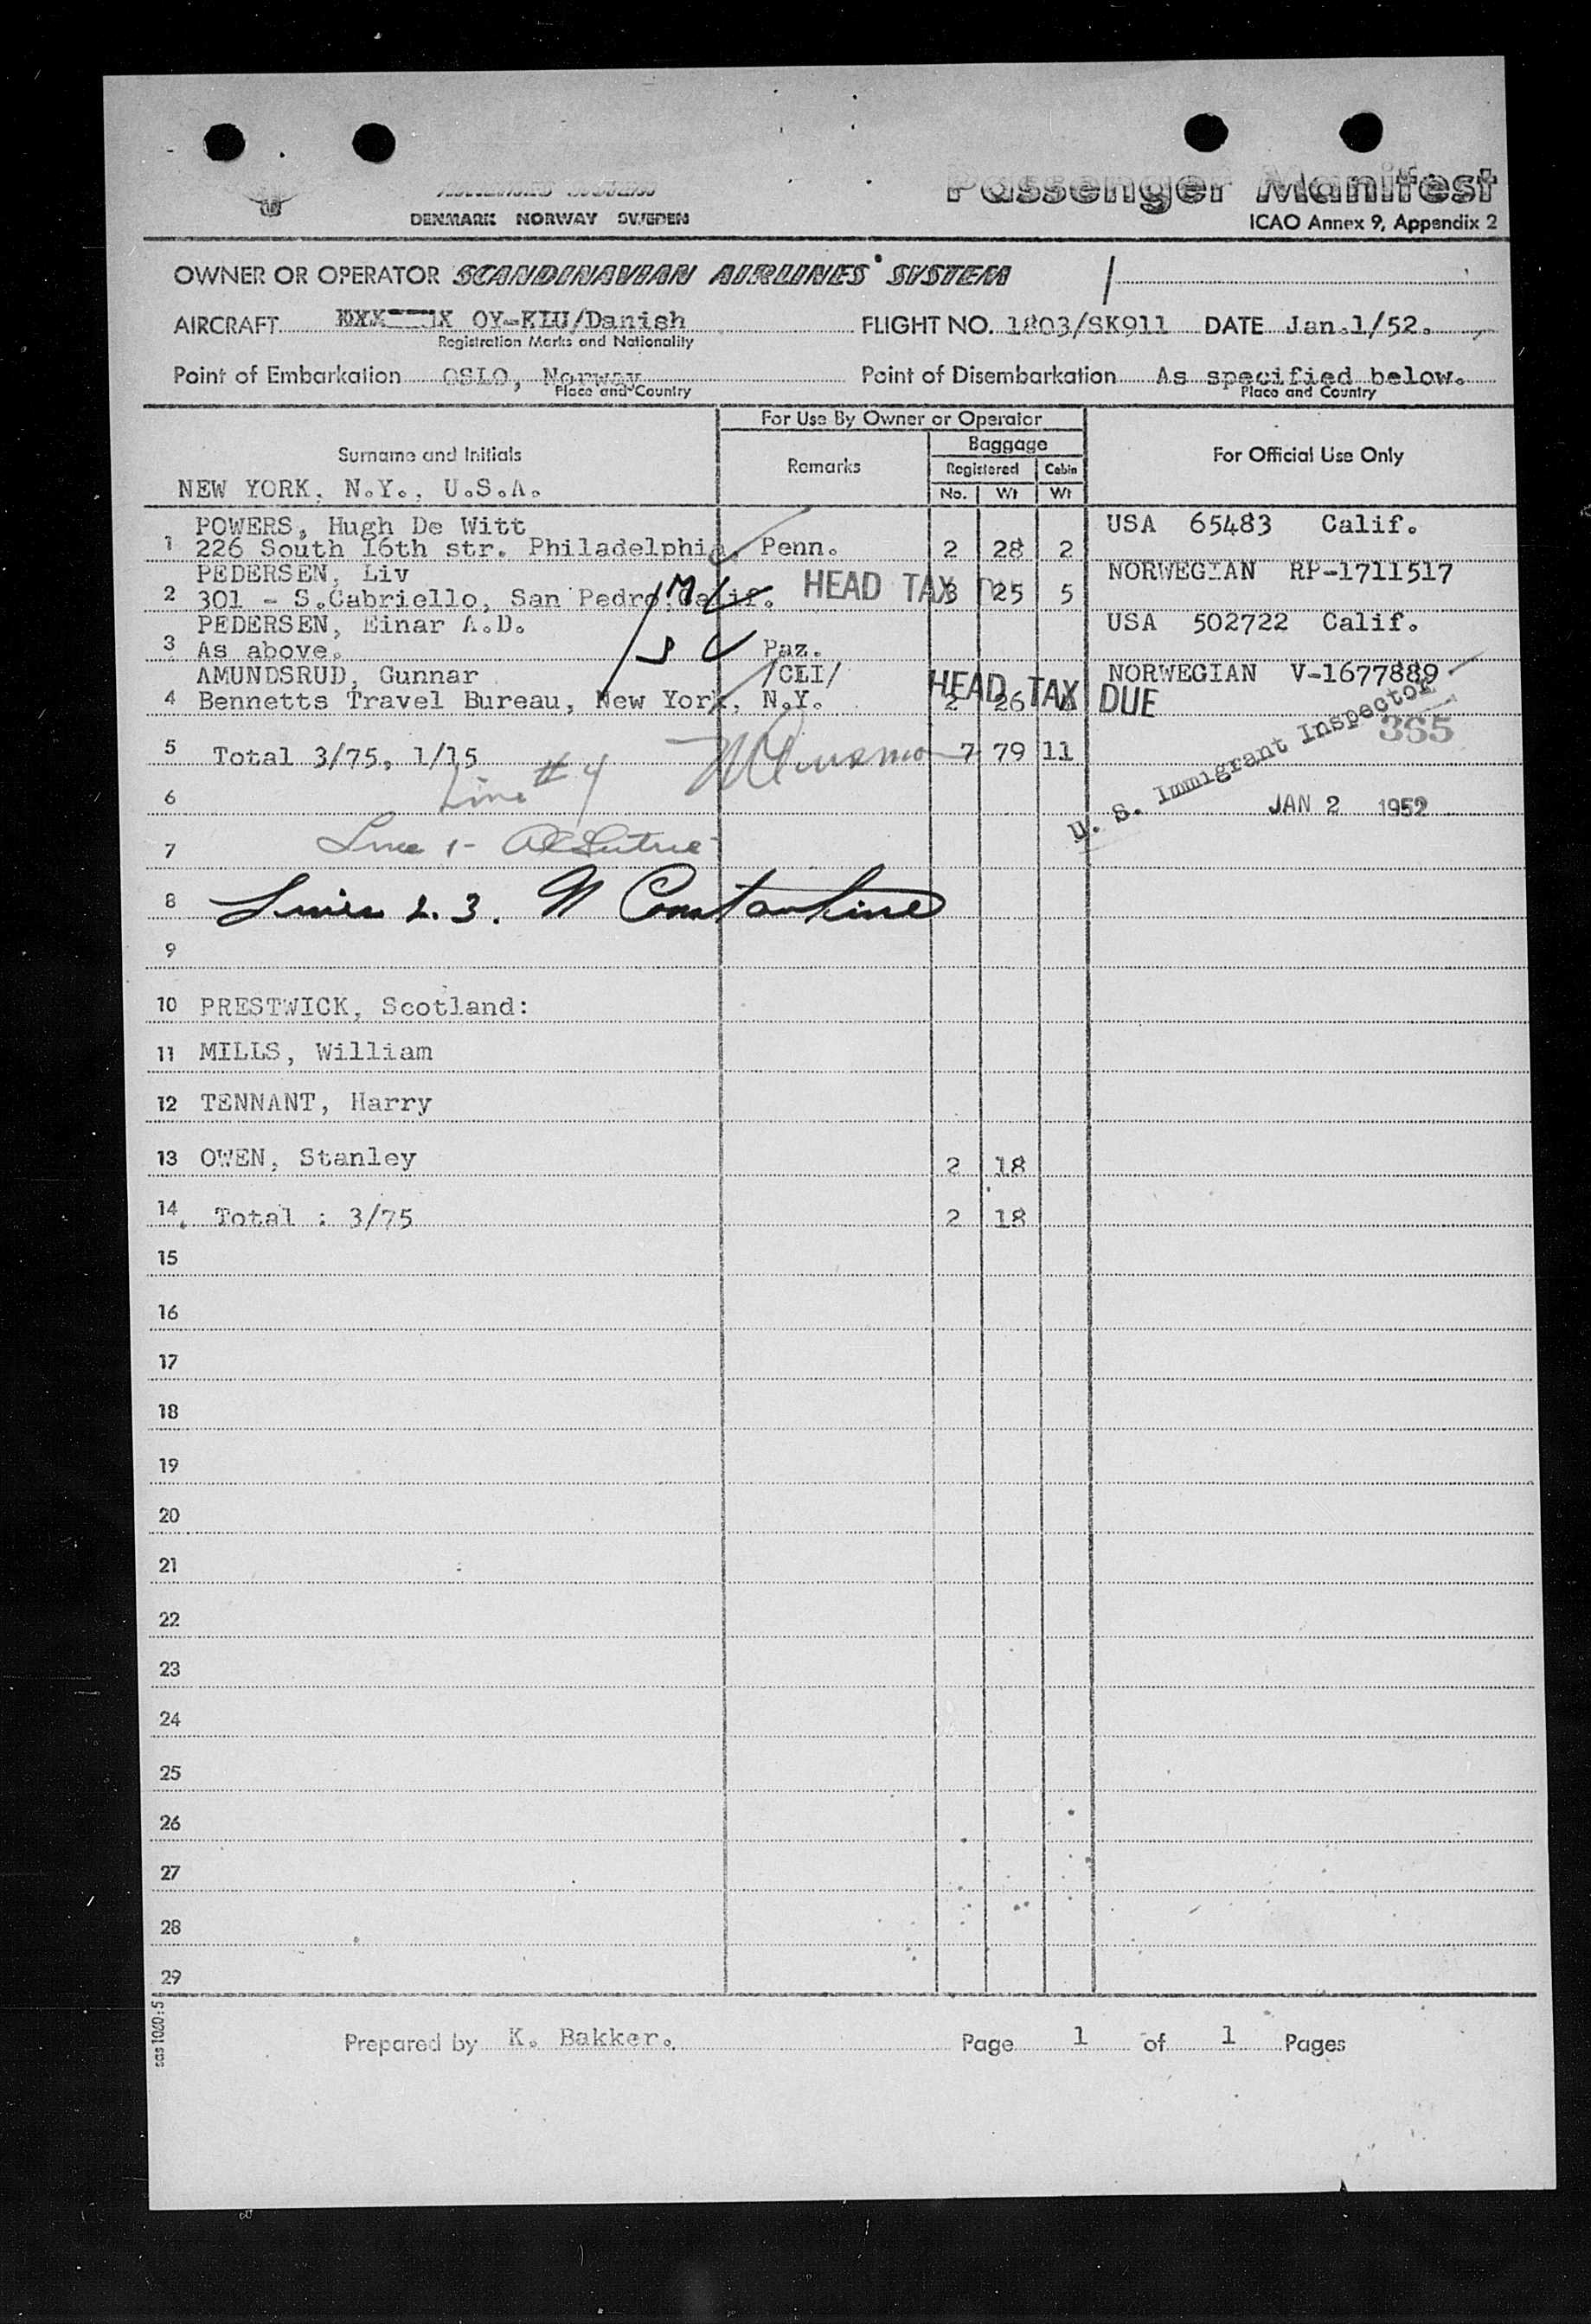 Passenger Manifest
DENMARK NORWAY SWEDEN
ICAO Annex 9, Appendix 2
OWNER OR OPERATOR SCANDINAVIAN AIRLINES SYSTEM
AIRCRAFT OY-KLU/Danish FLIGHT NO. 1803/SK911 DATE Jan.1/52.
Registration Marks and Nationality
Point of Embarkation OSLO, Norway Point of Disembarkation As specified below.
Place and Country Place and Country
For Use By Owner or Operator
Surname and Initials Remarks Baggage For Official Use Only
Registered Cabin
NEW YORK, N.Y., U.S.A. No. Wt Wt
POWERS, Hugh De Witt USA 65483 Calif.
1 226 South 16th str. Philadelphia, Penn. 2 28 2
PEDERSEN, Liv NORWEGIAN RP-1711517
2 301 - S.Cabriello, San Pedro, Calif. HEAD TAX 3 25 5
PEDERSEN, Einar A.D. USA 502722 Calif.
3 As above. Paz.
AMUNDSRUD, Gunnar /CLI/ NORWEGIAN V-1677889
4 Bennetts Travel Bureau, New York, N.Y. 2 26 HEAD TAX DUE
365
5 Total 3/75, 1/15 7 79 11
U. S. Immigrant Inspector
6 Line #4 JAN 2 1952
7 Line 1-
8 Lines 2.3. N Constantine
9
10 PRESTWICK, Scotland:
11 MILLS, William
12 TENNANT, Harry
13 OWEN, Stanley 2 18
14. Total : 3/75 2 18
15
16
17
18
19
20
21
22
23
24
25
26
27
28
29
sas 1060:5
Prepared by K. Bakker. Page 1 of 1 Pages